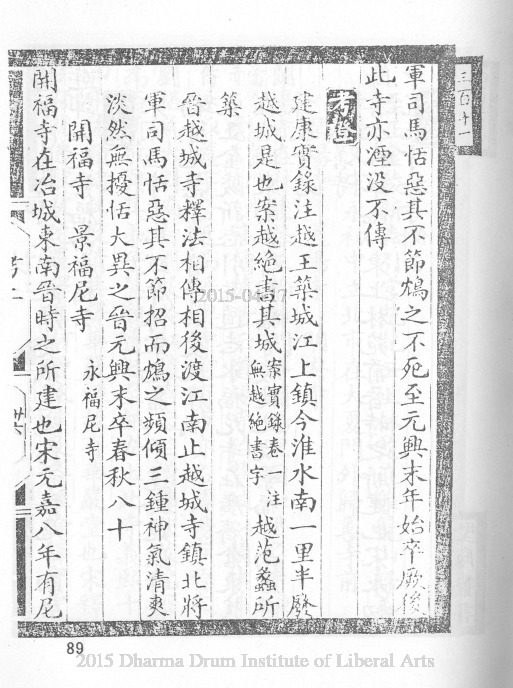 三百十一
軍司馬恬惡其不節鴆之不死至元興末年始卒厥後
此寺亦湮没不傳
建康實錄注越王築城江上鎮今淮水南一里半廢
越城是也案越絶書其城案實錄卷一注無越絶書字越范蠡所
築
晉越城寺釋法相傳相後渡江南止越城寺鎮北將
軍司馬恬惡其不節招而鴆之頻傾三鍾神氣清爽
淡然無擾恬大異之晉元興末卒春秋八十
開福寺 景福尼寺 永福尼寺
開福寺在冶城東南晉時之所建也宋元嘉八年有尼
89
2015-04-17
2015 Dharma Drum Institute of Liberal Arts